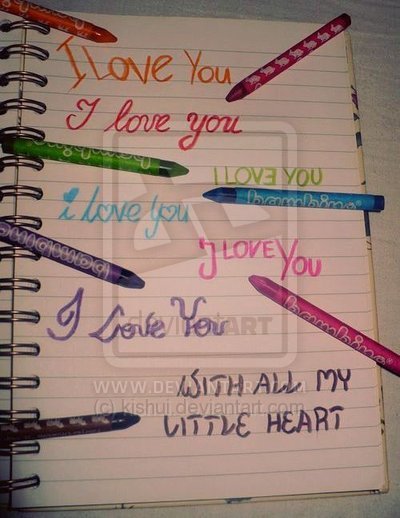 I Love You
I love you
I LOVE YOU
bambino
i love you
I LOVE YOU
bambino
I Love You
deviantART
WWW.DEVIANTART.COM
WITH ALL MY
(c) kishui.deviantart.com
LITTLE HEART